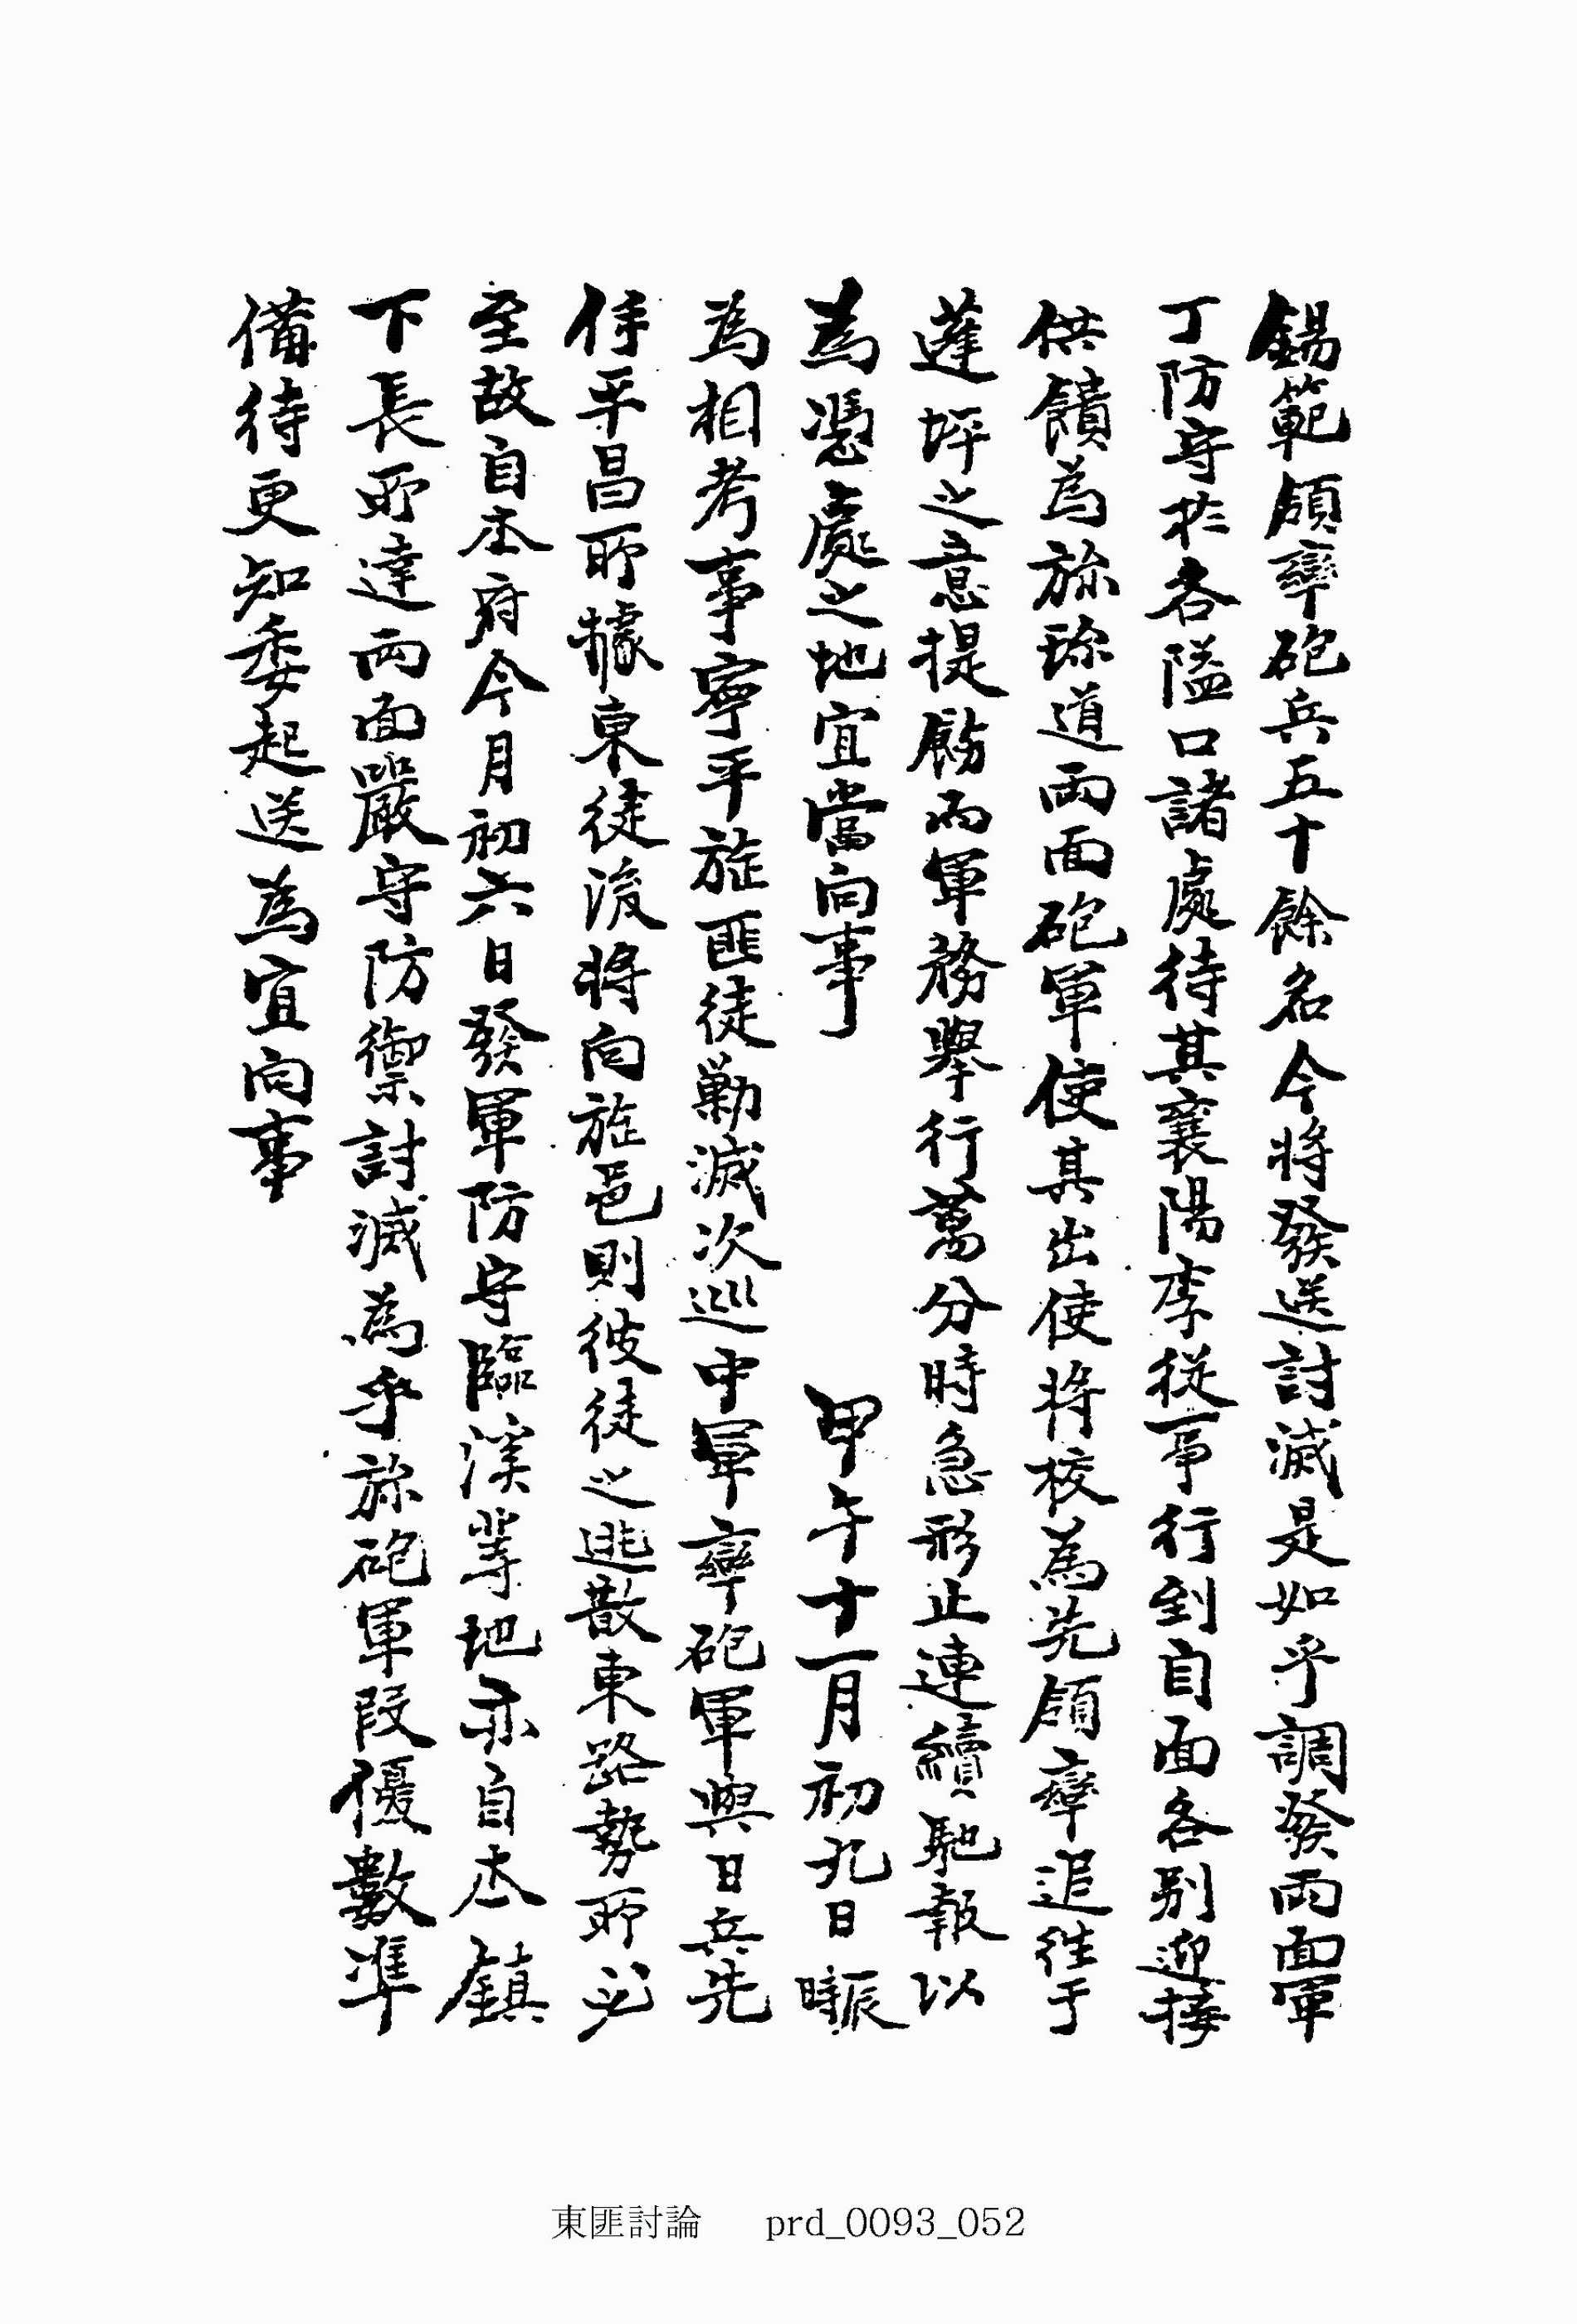 錫範領率砲兵五十餘名今將發送討滅是如乎調發兩面軍
丁防守於各隘口諸處待其襄陽李從事行到自面各別迎接
供饋爲旀珎道兩面砲軍使其出使將校爲先領率追往于
蓬坪之意提飭而軍務擧行萬分時急形止連續馳報以
爲憑處之地宜當向事 甲午十一月初九日
爲相考事寧平旌匪徒勦滅次巡中軍率砲軍與日兵先
住平昌所據東徒後將向旌邑則彼徒之逃散東路勢所必
至故自本府今月初六日發軍防守臨溪等地亦自本鎭
下長所達兩面嚴守防禦討滅爲乎旀砲軍段優數準
備待更知委起送爲宜向事
東匪討論 prd_0093_052